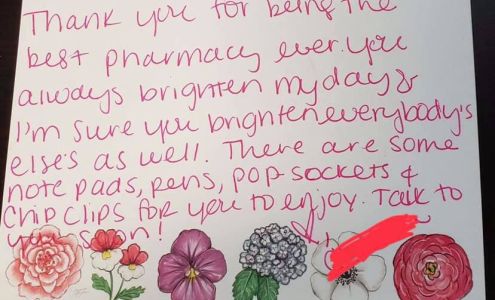 Thank you for being the
best pharmacy ever. you
always brighten my day &
I'm sure you brighten everybody's
else's as well. There are some
note pads, pens, pop sockets &
Chip clips for you to enjoy. Talk to
you soon!